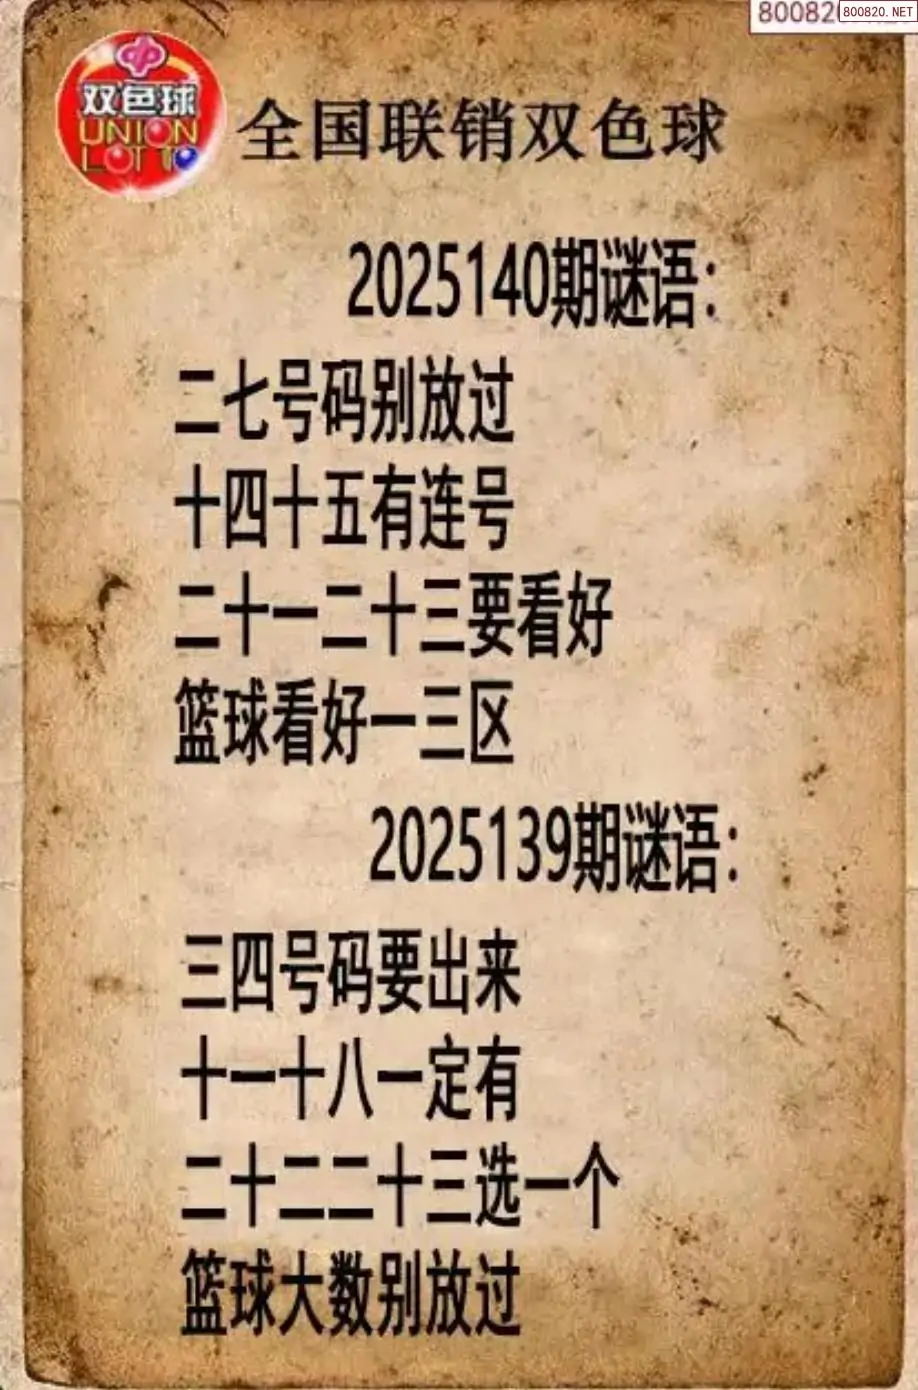 800820.NET
双色球
UNION
LOTTO
全国联销双色球
2025140期谜语：
二七号码别放过
十四十五有连号
二十一二十三要看好
篮球看好一三区
2025139期谜语：
三四号码要出来
十一十八一定有
二十二二十三选一个
篮球大数别放过